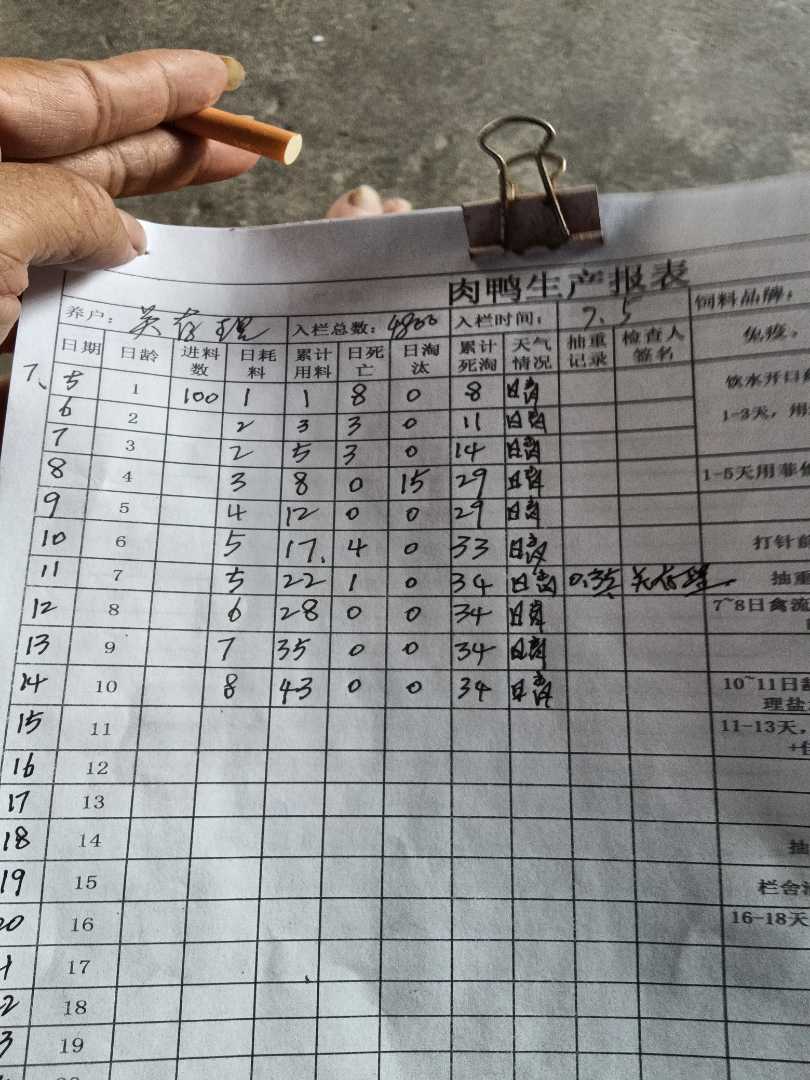 肉鸭生产报表
养户: 入栏总数: 4800 入栏时间: 7.5 饲料品牌:
日期 日龄 进料数 日耗料 累计用料 日死亡 日淘汰 累计死淘 天气情况 抽重记录 检查人签名 免疫、
7、5 1 100 1 1 8 0 8 晴 饮水开口
6 2 2 3 3 0 11 晴 1-3天，用
7 3 2 5 3 0 14 晴
8 4 3 8 0 15 29 晴 1-5天用
9 5 4 12 0 0 29 晴
10 6 5 17 4 0 33 晴 打针前
11 7 5 22 1 0 34 晴 0.35 抽重
12 8 6 28 0 0 34 晴 7~8日禽流
13 9 7 35 0 0 34 晴
14 10 8 43 0 0 34 晴 10~11日龄
理盐
15 11 11-13天，
16 12
17 13
18 14 抽
19 15 栏舍
20 16 16-18天
17
2 18
3 19